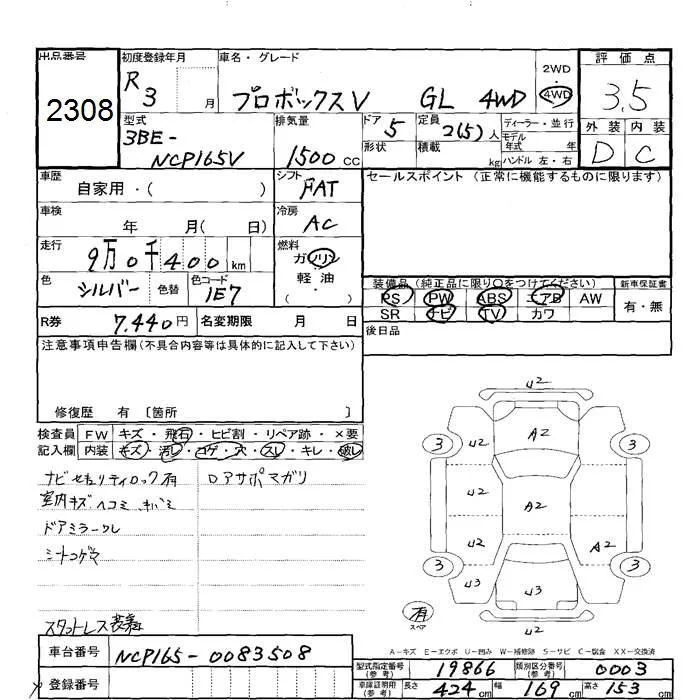 出品番号 初度登録年月 車名・グレード 2WD 評価点
2308 R3 月 プロボックスV GL 4WD 4WD 3.5
型式 排気量 ドア 5 定員 2(5)人 ディーラー・並行 外装 内装
3BE- 形状 積載 kg モデル年式 年式 D C
NCP165V 1500 cc ハンドル 左・右
車歴 自家用・( ) シフト FAT セールスポイント (正常に機能するものに限ります)
車検 年 月( 日) 冷房 AC
走行 9万0千400 km 燃料 ガソリン
色 シルバー 色替 色コード 1E7 軽油 ・( )
装備品 (純正品に限り○をつけてください) 新車保証書
PS PW ABS エアB AW 有・無
SR ナビ TV カワ
R券 7,440円 名変期限 月 日 後日品
注意事項申告欄(不具合内容等は具体的に記入して下さい)
修復歴 有 〔箇所 〕
検査員 FW キズ・飛石・ヒビ割・リペア跡・×要
記入欄 内装 キズ・汚レ・コゲ・穴・スレ・キレ・破レ
ナビセキュリティロック有 Dアサポマガリ
室内キズ ヘコミ
ドアミラースレ
シートコゲ
スタットレス装着
U2
A2
3 U2 3
U2 A2
U2 A2
3 U3 U3 3
有 スペア U2
A-キズ E-エクボ U-凹み W-補修跡 S-サビ C-腐食 XX-交換済
車台番号 NCP165-0083508
登録番号
型式指定番号(参考) 19866 類別区分番号(参考) 0003
車庫証明用(参考) 長さ 424cm 幅 169cm 高さ 153cm